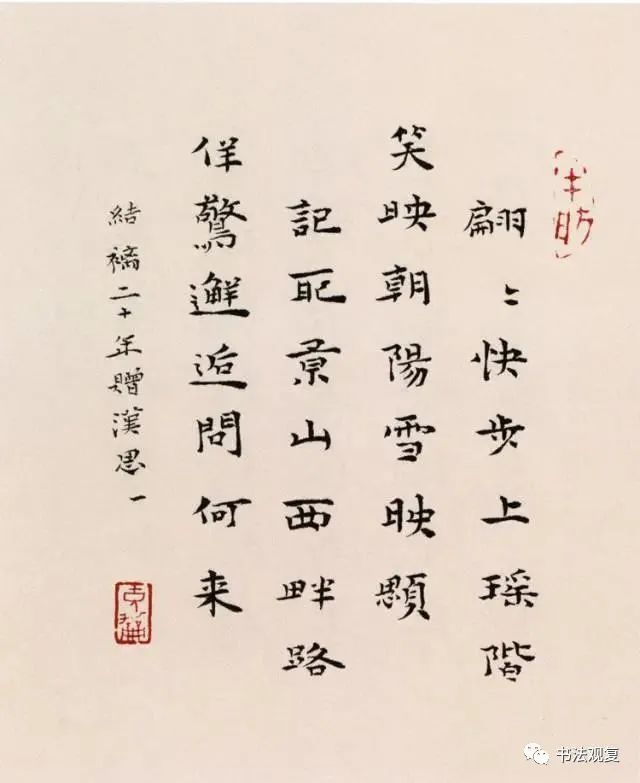 翩〻快步上瑶階
笑映朝陽雪映顋
記取景山西畔路
佯驚邂逅問何来
結褵二十年贈漢思一
书法观复